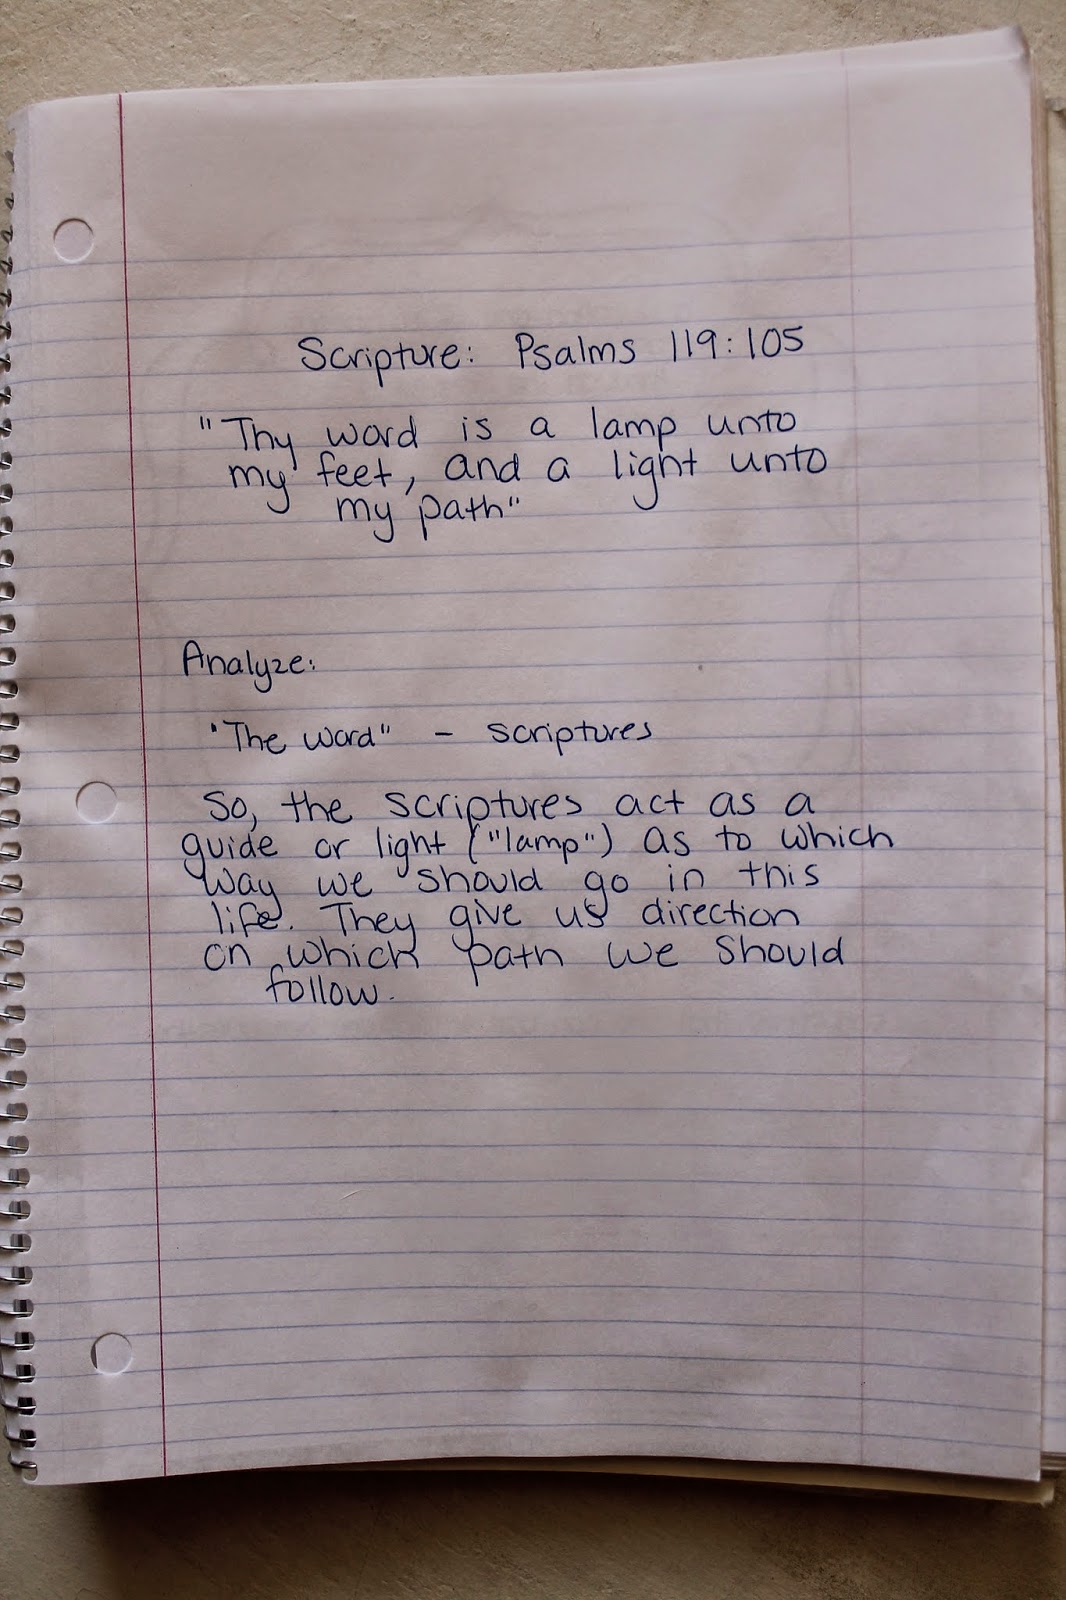 Scripture: Psalms 119:105
"Thy word is a lamp unto
my feet, and a light unto
my path"
Analyze:
"The word" - scriptures
So, the scriptures act as a
guide or light ("lamp") as to which
way we should go in this
life. They give us direction
on which path we should
follow.